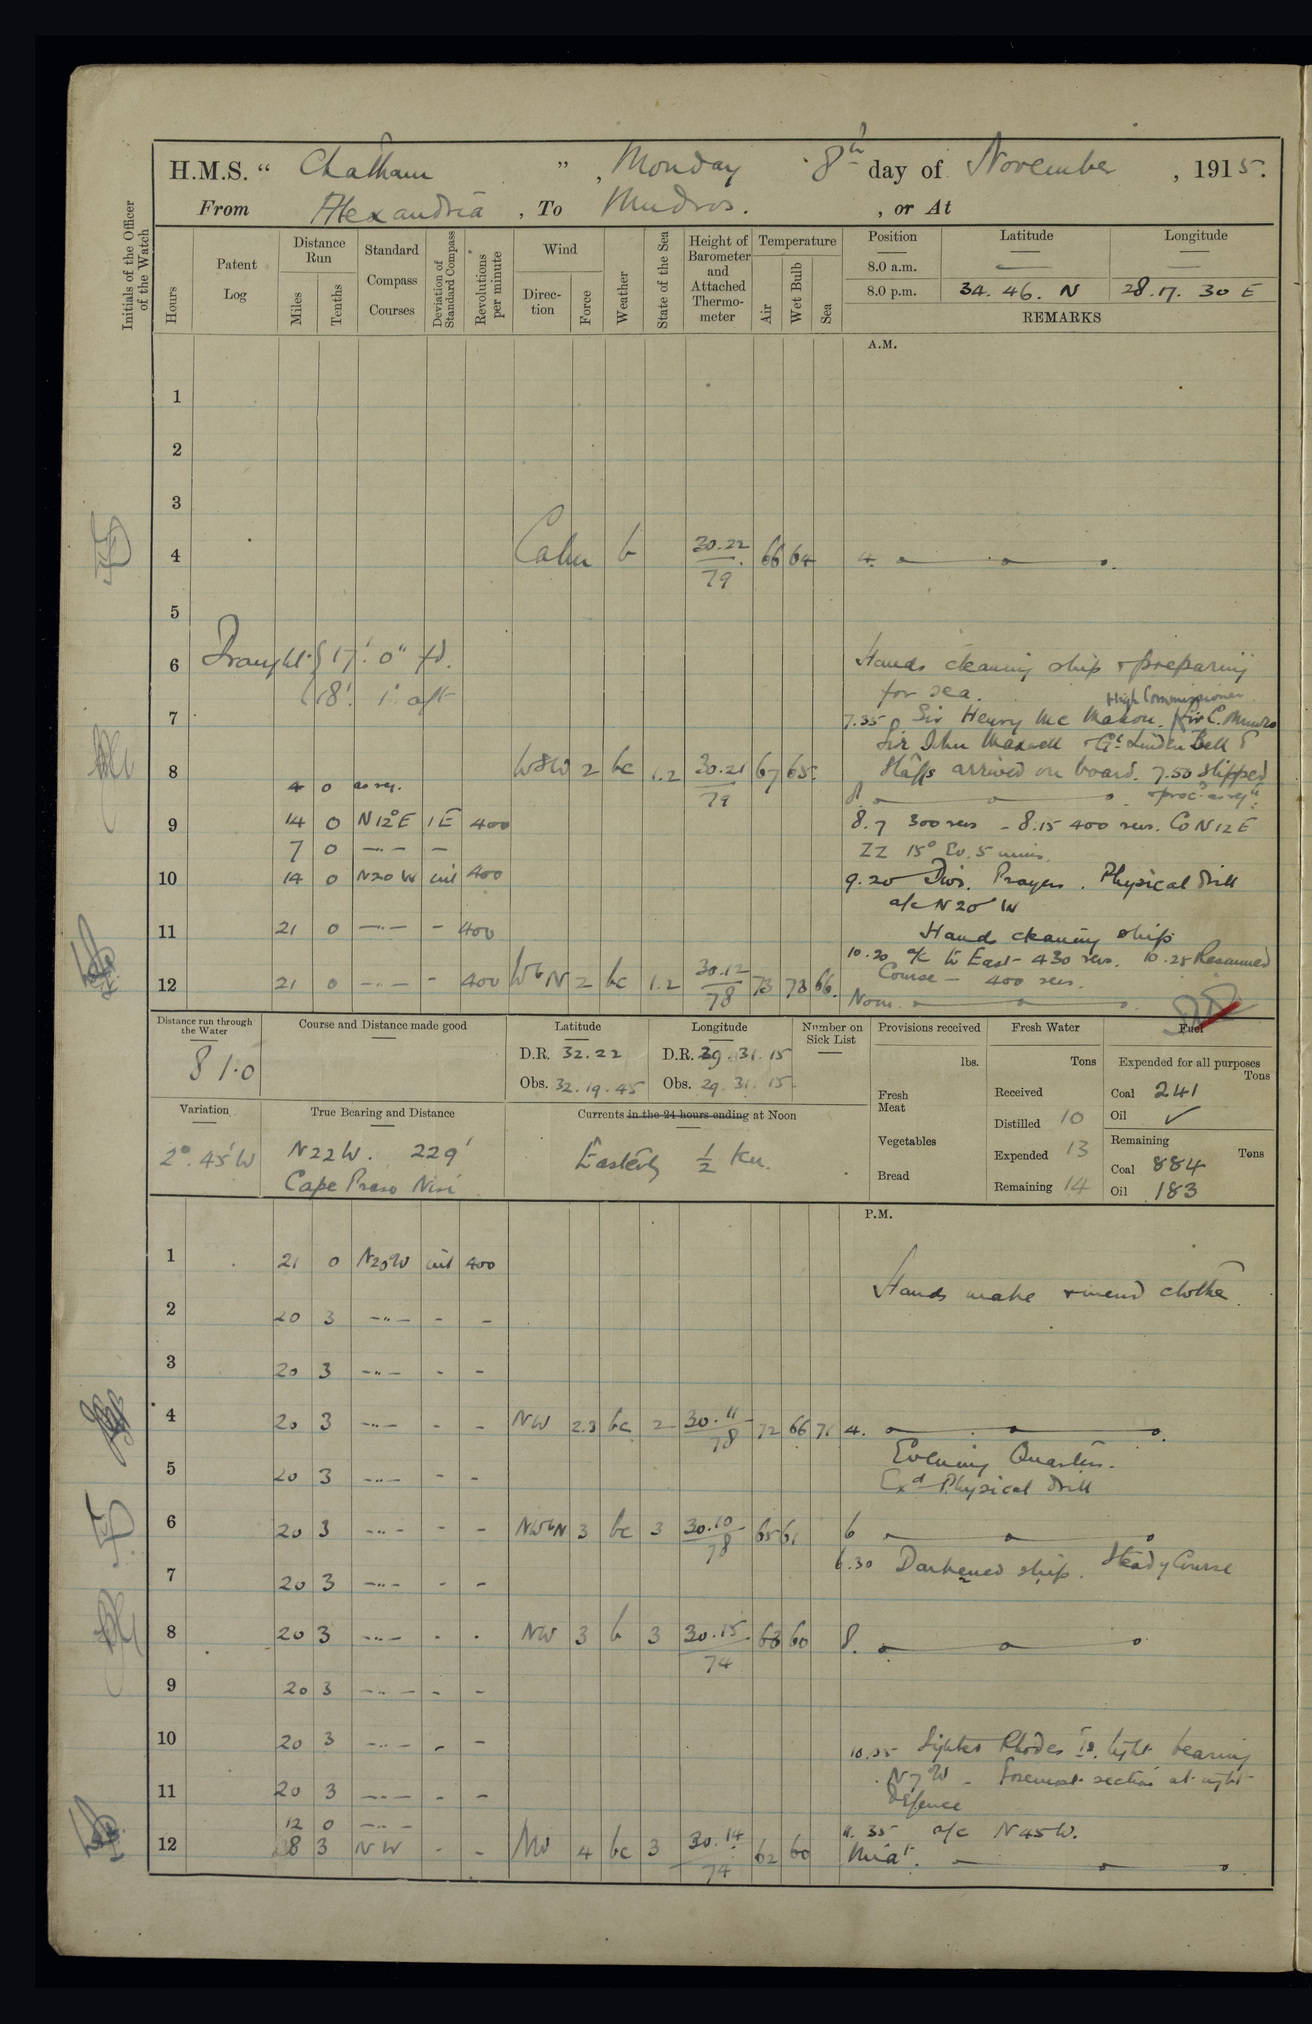 H.M.S. “ Chatham ”, Monday 8th day of November, 1915.
From Alexandria, To Mudros., or At
Initials of the Officer of the Watch
Hours
Patent Log
Distance Run
Miles
Tenths
Standard Compass Courses
Deviation of Standard Compass
Revolutions per minute
Wind
Direction
Force
Weather
State of the Sea
Height of Barometer and Attached Thermometer
Temperature
Air
Wet Bulb
Sea
Position Latitude Longitude
8.0 a.m. — —
8.0 p.m. 34. 46. N 28. 17. 30 E
REMARKS
A.M.
1
2
3
4 Calm b 30.22/79 66 64 4.
5
6 Draught { 17' 0" fd. Hands cleaning ship & preparing
18' 1" aft for sea.
High Commissioner
7 7.35 Sir Henry Mc Mahon. Sir C. Munro
Sir John Maxwell Gl Linden Bell &
8 WSW 2 bc 1.2 30.21/79 67 65. Staffs arrived on board. 7.50 Slipped
4 0 as req. 8. & procd as reqd.
9 14 0 N12°E 1E 400 8.7 300 revs - 8.15 400 revs. Co N12E
7 0 —"— — ZZ 15° Ev. 5 mins.
10 14 0 N20W nil 400 9.20 Divs. Prayers. Physical Drill
a/c N20°W
11 21 0 —"— - 400 Hands cleaning ship
10.20 a/c to East - 430 revs. 10.25 Resumed
12 21 0 —"— - 400 WbN 2 bc 1.2 30.12/78 73 73 66. Course - 400 revs.
Noon.
Distance run through the Water
81.0
Course and Distance made good
Latitude
D.R. 32.22
Obs. 32.19.45
Longitude
D.R. 29.31.15
Obs. 29.31.15
Number on Sick List
Provisions received
lbs.
Fresh Meat
Vegetables
Bread
Fresh Water
Tons
Received
Distilled 10
Expended 13
Remaining 14
Fuel
Expended for all purposes
Tons
Coal 241
Oil ✓
Remaining
Tons
Coal 884
Oil 183
Variation
2°.45'W
True Bearing and Distance
N22W. 229'
Cape Praso Nisi
Currents in the 24 hours ending at Noon
Easterly 1/2 Kn.
P.M.
1 21 0 N20W nil 400
Hands make & mend clothes.
2 20 3 —"— - -
3 20 3 —"— - -
4 20 3 —"— - - NW 2.3 bc 2 30.11/78 72 66 71 4.
Evening Quarters.
5 20 3 —"— - - Exd Physical Drill
6 20 3 —"— - - NWbN 3 bc 3 30.10/78 65 61 6
6.30 Darkened ship. Steady Course
7 20 3 —"— - -
8 20 3 —"— - - NW 3 b 3 30.15/74 63 60 8.
9 20 3 —"— - -
10 20 3 —"— - - 10.35 Sighted Rhodes Id. light bearing
N7W - Foremost section at night
11 20 3 —"— - - Defence
12 0 —"— 11.35 a/c N45W.
12 8 3 NW - - NW 4 bc 3 30.14/74 62 60 Midt.